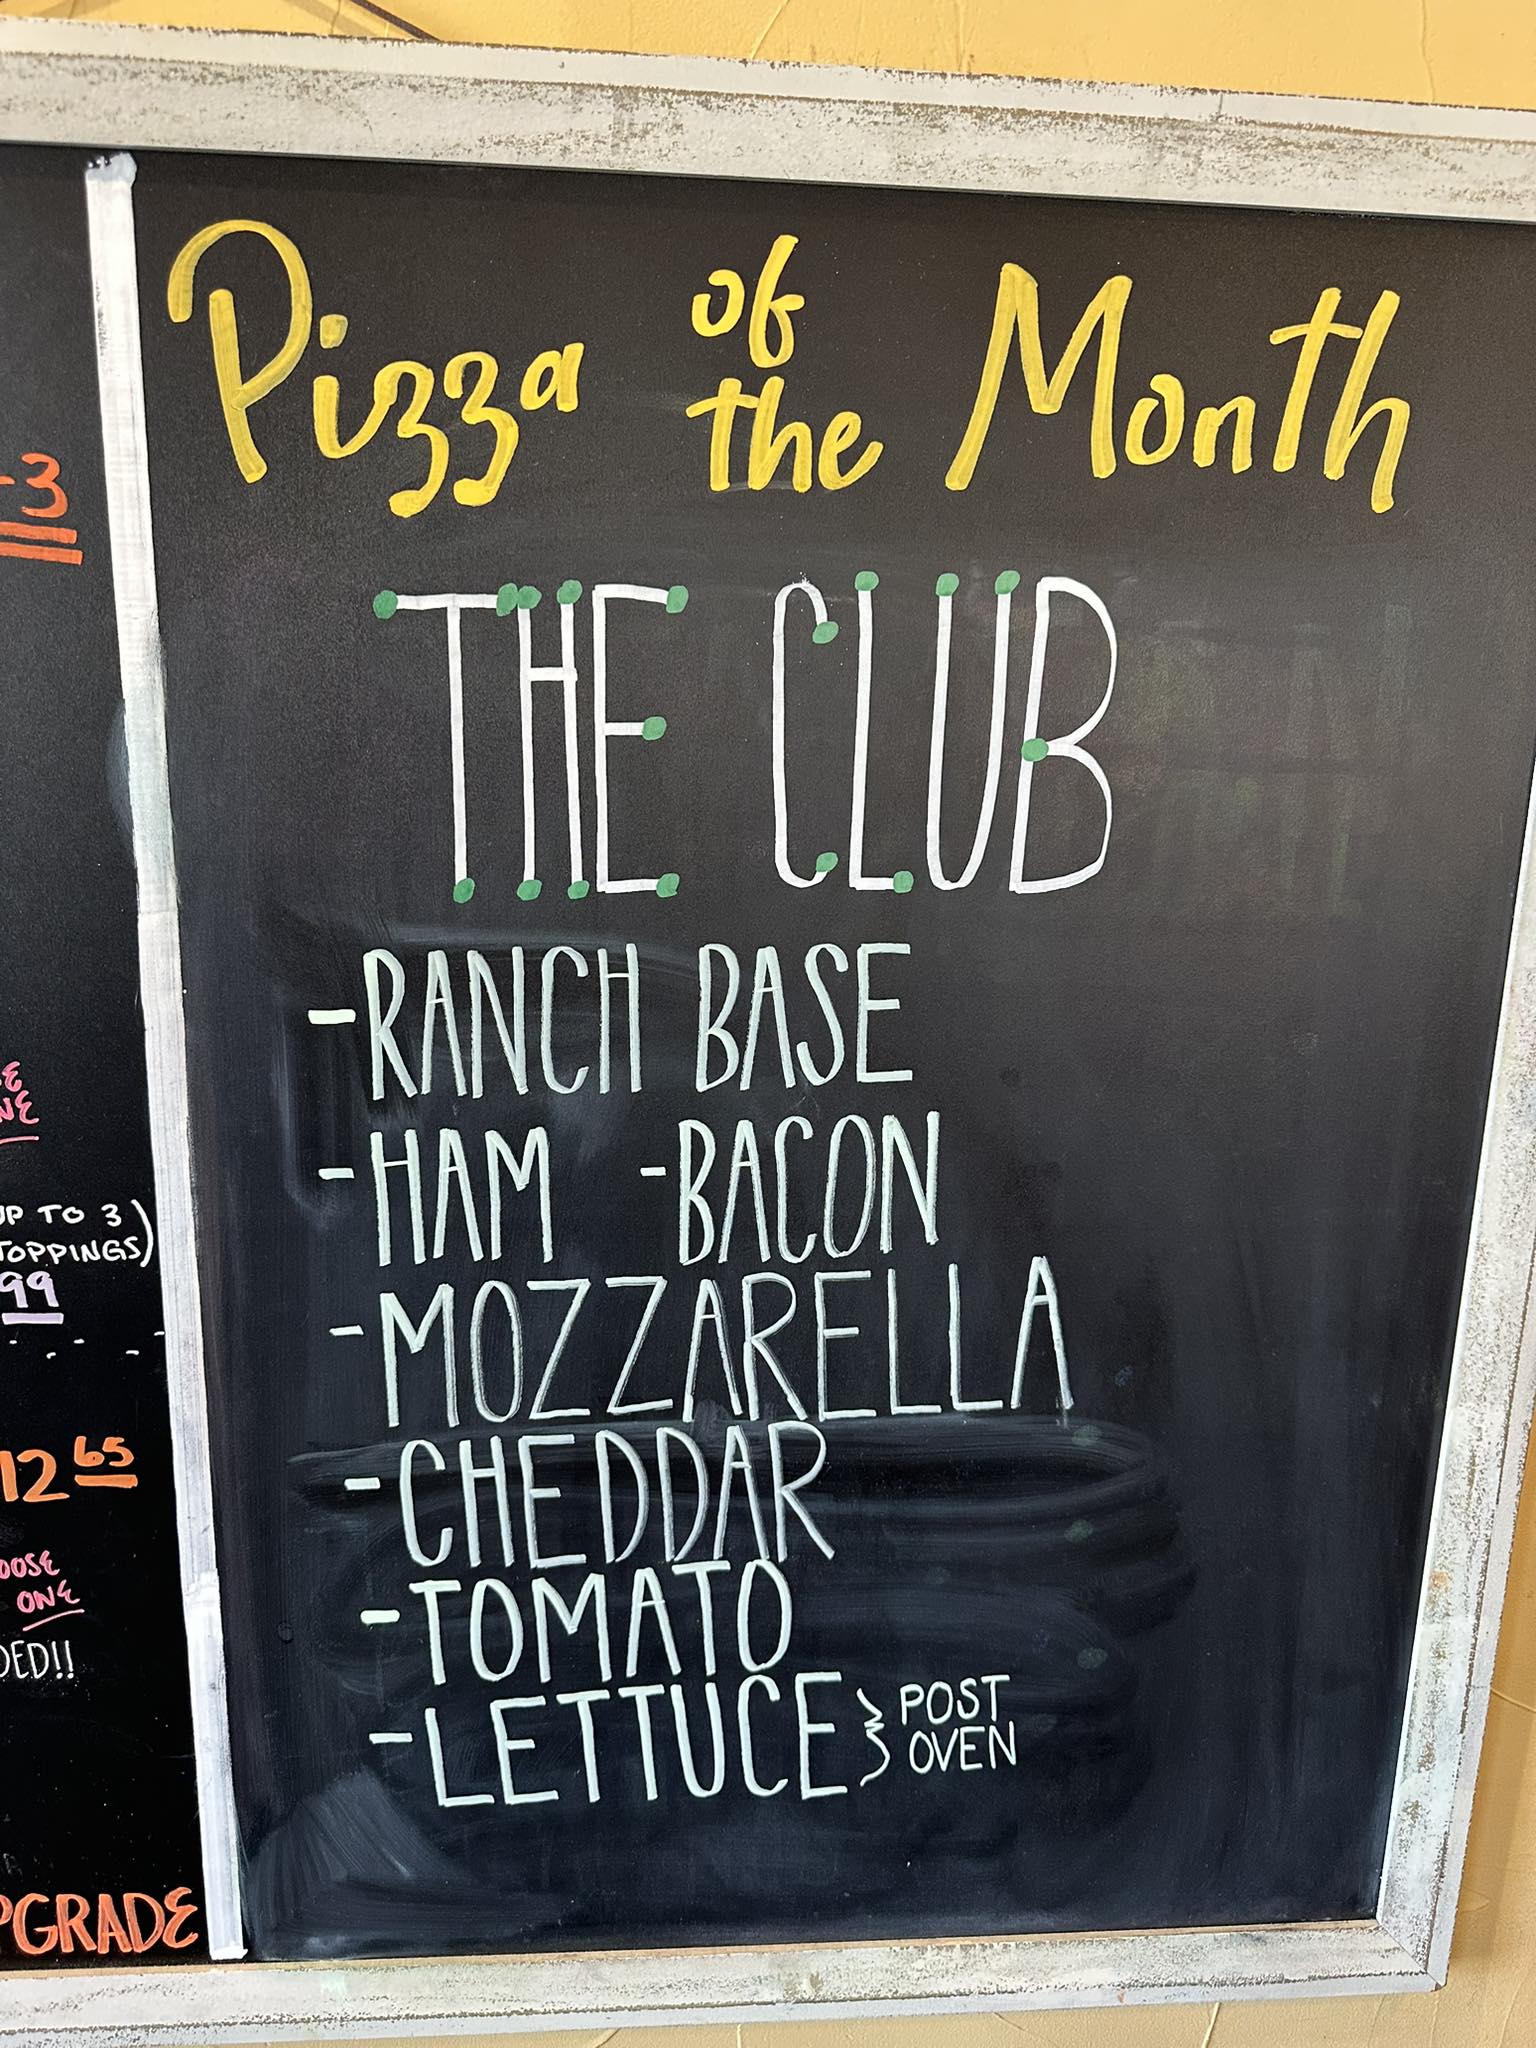 Pizza of the Month
THE CLUB
-RANCH BASE
-HAM -BACON
-MOZZARELLA
-CHEDDAR
-TOMATO
-LETTUCE } POST OVEN
-3
NE
UP TO 3
TOPPINGS)
99
12 65
OOSE
ONE
DED!!
PGRADE